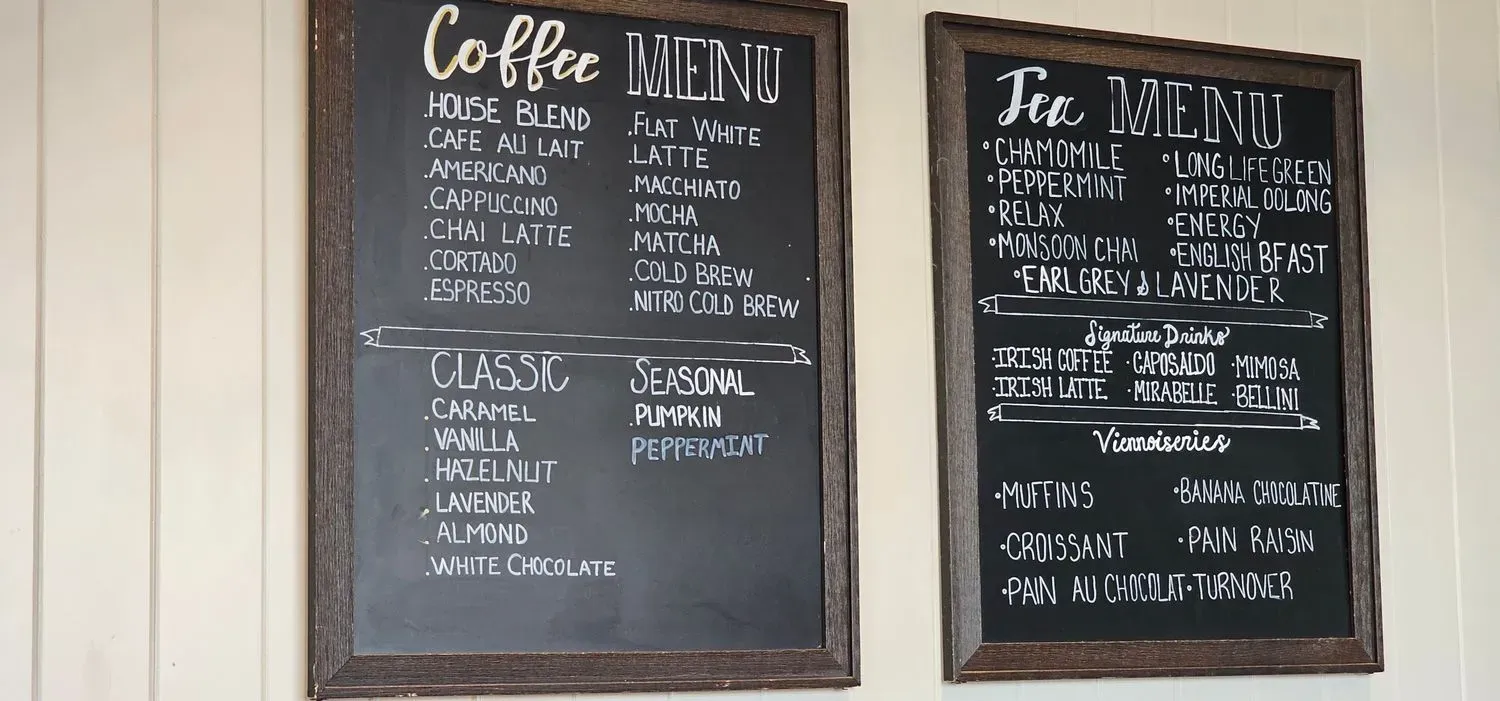 Coffee MENU
.HOUSE BLEND
.CAFE AU LAIT
.AMERICANO
.CAPPUCCINO
.CHAI LATTE
.CORTADO
.ESPRESSO
.FLAT WHITE
.LATTE
.MACCHIATO
.MOCHA
.MATCHA
.COLD BREW
.NITRO COLD BREW
CLASSIC
.CARAMEL
.VANILLA
.HAZELNUT
.LAVENDER
.ALMOND
.WHITE CHOCOLATE
SEASONAL
.PUMPKIN
PEPPERMINT
Tea MENU
•CHAMOMILE
•PEPPERMINT
•RELAX
•MONSOON CHAI
•LONG LIFE GREEN
•IMPERIAL OOLONG
•ENERGY
•ENGLISH BFAST
•EARL GREY & LAVENDER
Signature Drinks
•IRISH COFFEE •CAPOSALDO •MIMOSA
•IRISH LATTE •MIRABELLE •BELLINI
Viennoiseries
•MUFFINS •BANANA CHOCOLATINE
•CROISSANT •PAIN RAISIN
•PAIN AU CHOCOLAT •TURNOVER